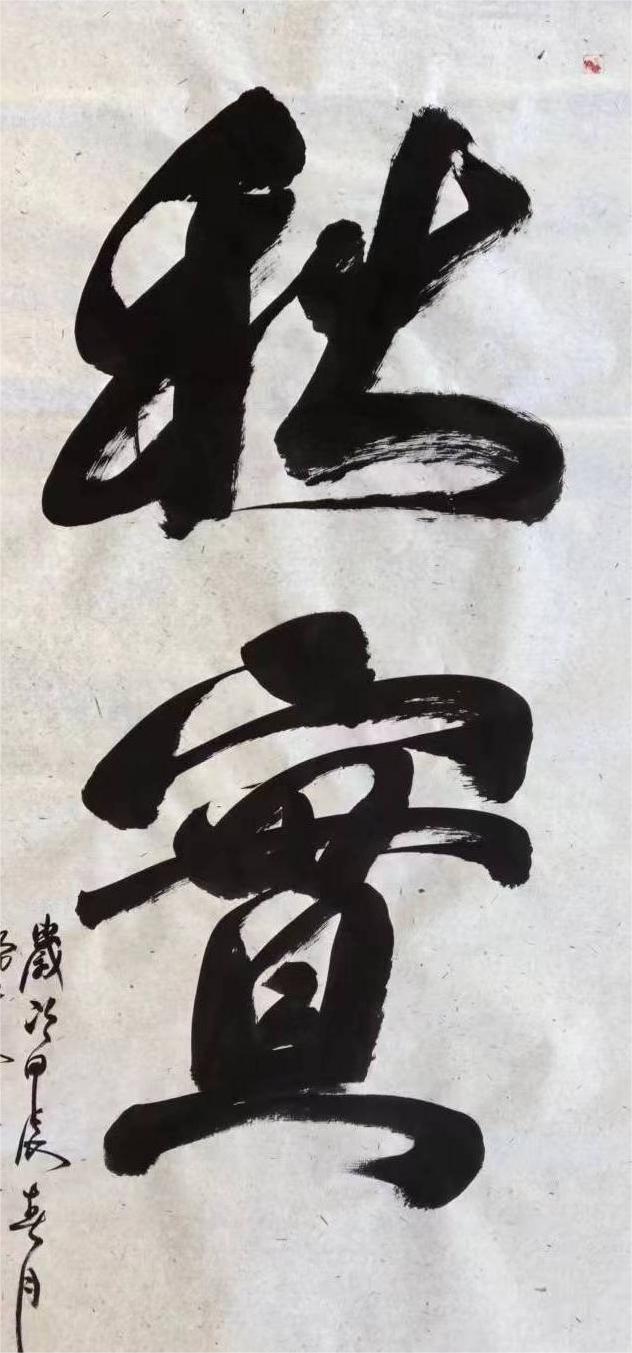 秋實
歲次甲辰春月